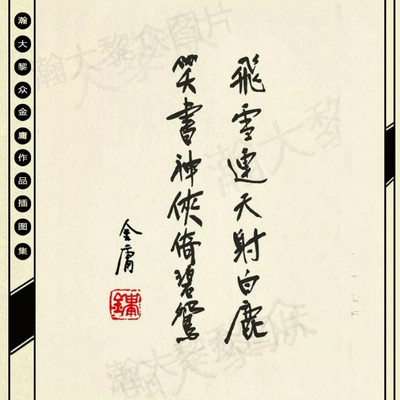 飛雪連天射白鹿
笑書神俠倚碧鴛
金庸
瀚大黎众金庸作品插图集
瀚大黎众图片
瀚大黎
瀚大黎